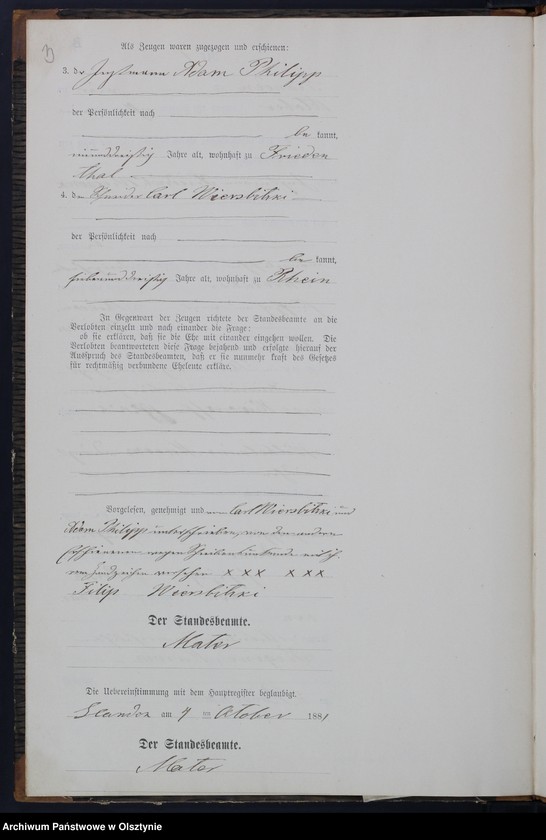 Als Zeugen waren zugezogen und erschienen:
3. der Instmann Adam Philipp
der Persönlichkeit nach
be kannt,
neununddreißig Jahre alt, wohnhaft zu Frieden
thal
4. der Carl Wiersbitzki
der Persönlichkeit nach
be kannt,
siebenunddreißig Jahre alt, wohnhaft zu Rhein
In Gegenwart der Zeugen richtete der Standesbeamte an die
Verlobten einzeln und nach einander die Frage:
ob sie erklären, daß sie die Ehe mit einander eingehen wollen. Die
Verlobten beantworteten diese Frage bejahend und erfolgte hierauf der
Ausspruch des Standesbeamten, daß er sie nunmehr kraft des Gesetzes
für rechtmäßig verbundene Eheleute erkläre.
Vorgelesen, genehmigt und von Carl Wiersbitzki und
Adam Philipp unterschrieben, von den anderen
Erschienenen wegen Schreibensunkunde mit ih-
ren Handzeichen versehen x x x x x x
Filip Wiersbitzki
Der Standesbeamte.
Mater
Die Uebereinstimmung mit dem Hauptregister beglaubigt.
am ten October 1881
Der Standesbeamte.
Mater
Archiwum Państwowe w Olsztynie